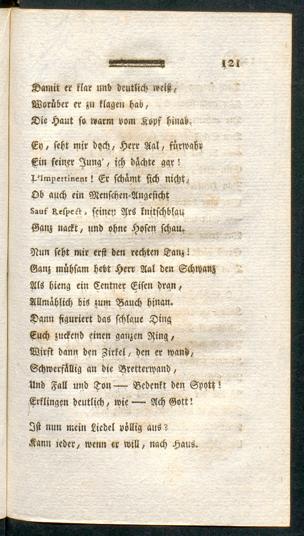 121
Damit er klar und deutlich weiß,
Worüber er zu klagen hab,
Die Haut so warm vom Kopf hinab.
Ey, seht mir doch, Herr Aal, fürwahr
Ein feiner Jung', ich dächte gar!
L'Impertinent! Er schämt sich nicht,
Ob auch ein Menschen-Angesicht
Sauf Respect, seinen Ars knitschblau
Ganz nackt, und ohne Hosen schau.
Nun seht mir erst den rechten Tanz!
Ganz mühsam hebt Herr Aal den Schwanz
Als hieng ein Centner Eisen dran,
Allmählich bis zum Bauch hinan.
Dann figuriert das schlaue Ding
Euch zuckend einen ganzen Ring,
Wirft dann den Zirkel, den er wand,
Schwerfällig an die Bretterwand,
Und Fall und Ton — Bedenkt den Spott!
Erklingen deutlich, wie — Ach Gott!
Ist nun mein Liedel völlig aus?
Kann jeder, wenn er will, nach Haus.